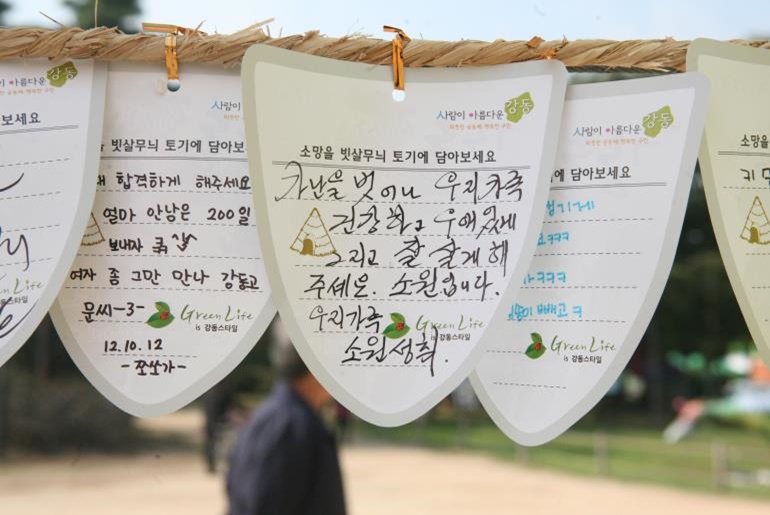 아름다운 강동
보세요
Green Life
강동스타일
사람이
빗살무늬 토기에 담아보
합격하게 해주세요
얼마 안남은 200일
보내자
여자 좀 그만 만나 강동고
문씨-3-
Green Life
is 강동스타일
12.10.12
-쪼쏘가-
사람이 아름다운 강동
소망을 빗살무늬 토기에 담아보세요
가난을 벗어나 우리가족
건강하고 우애있게
그리고 잘 살게 해
주세요. 소원입니다.
우리가족
Green Life
is 강동스타일
소원성취.
사람이 아름다운 강동
토기에 담아보세요
ㅋㅋㅋ
ㅋㅋㅋ
빼고 ㅋ
Green Life
is 강동스타일
소망을